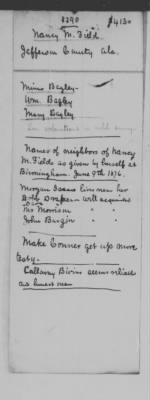 8290 $4130
Nancy M. Field.
Jefferson County Ala.
Minnie Bagley-
Wm. Bagley
Mary Bagley
Names of neighbors of Nancy
M. Fields as given by himself at
Birmingham. June 9th 1876.
Morgan Isaacs lives near her
Bob Draper - well acquainted
Morrison " "
John Bargin " "
Make Conner get up more
testy.
Callaway Bivins seems reliable
and honest man